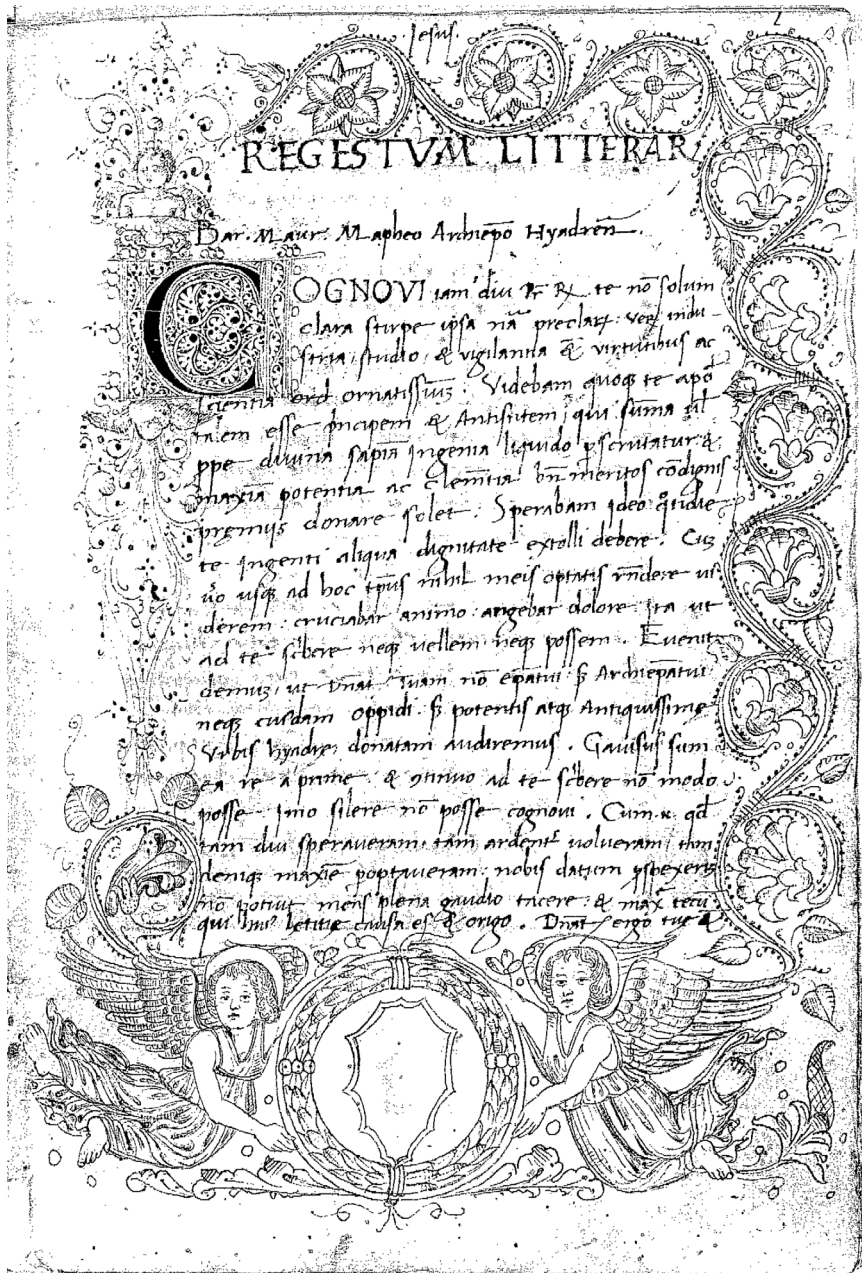 Jesus.
REGESTVM LITTERAR
Bar. Maur. Mapheo Archiepo Hyadren.
COGNOVI iam diu te no solum
clara stirpe ipsa na preclar verq indu-
stria studio & vigilantia & virtutibus ac
scientia ornatissimum. Videbam quoq te apo
principem & Antistitem, qui summa
divina ingenia liquido pscrutatur &
potentia ac clementia bn meritos condignis
premiis donare solet. Sperabam ideo qtidie
te ingenti aliqua dignitate extolli debere. Cuz
vo usq ad hoc tpus nihil meis optatis rndere vi
derem: cruciabar animo: angebar dolore: Ita ut
ad te scbere neq vellem neq possem. Evenit
demuz, ut Dnat Tuam no epatui s Archiepatui
neq cusdam oppidi s potentis atq Antiquissime
Urbis hyadre donatam audiremus. Gavisus sum
ea re apprime & 9tinuo ad te scbere no modo
posse Imo silere no posse cognovi. Cum qd
tam diu speraveram, tam ardent volueram,
deniq maxie poptaveram, nobis datum pspexeriz
no potuit mens plena gaudio tacere: & max tecu
qui letitie causa es & origo. Dnat ergo tue &